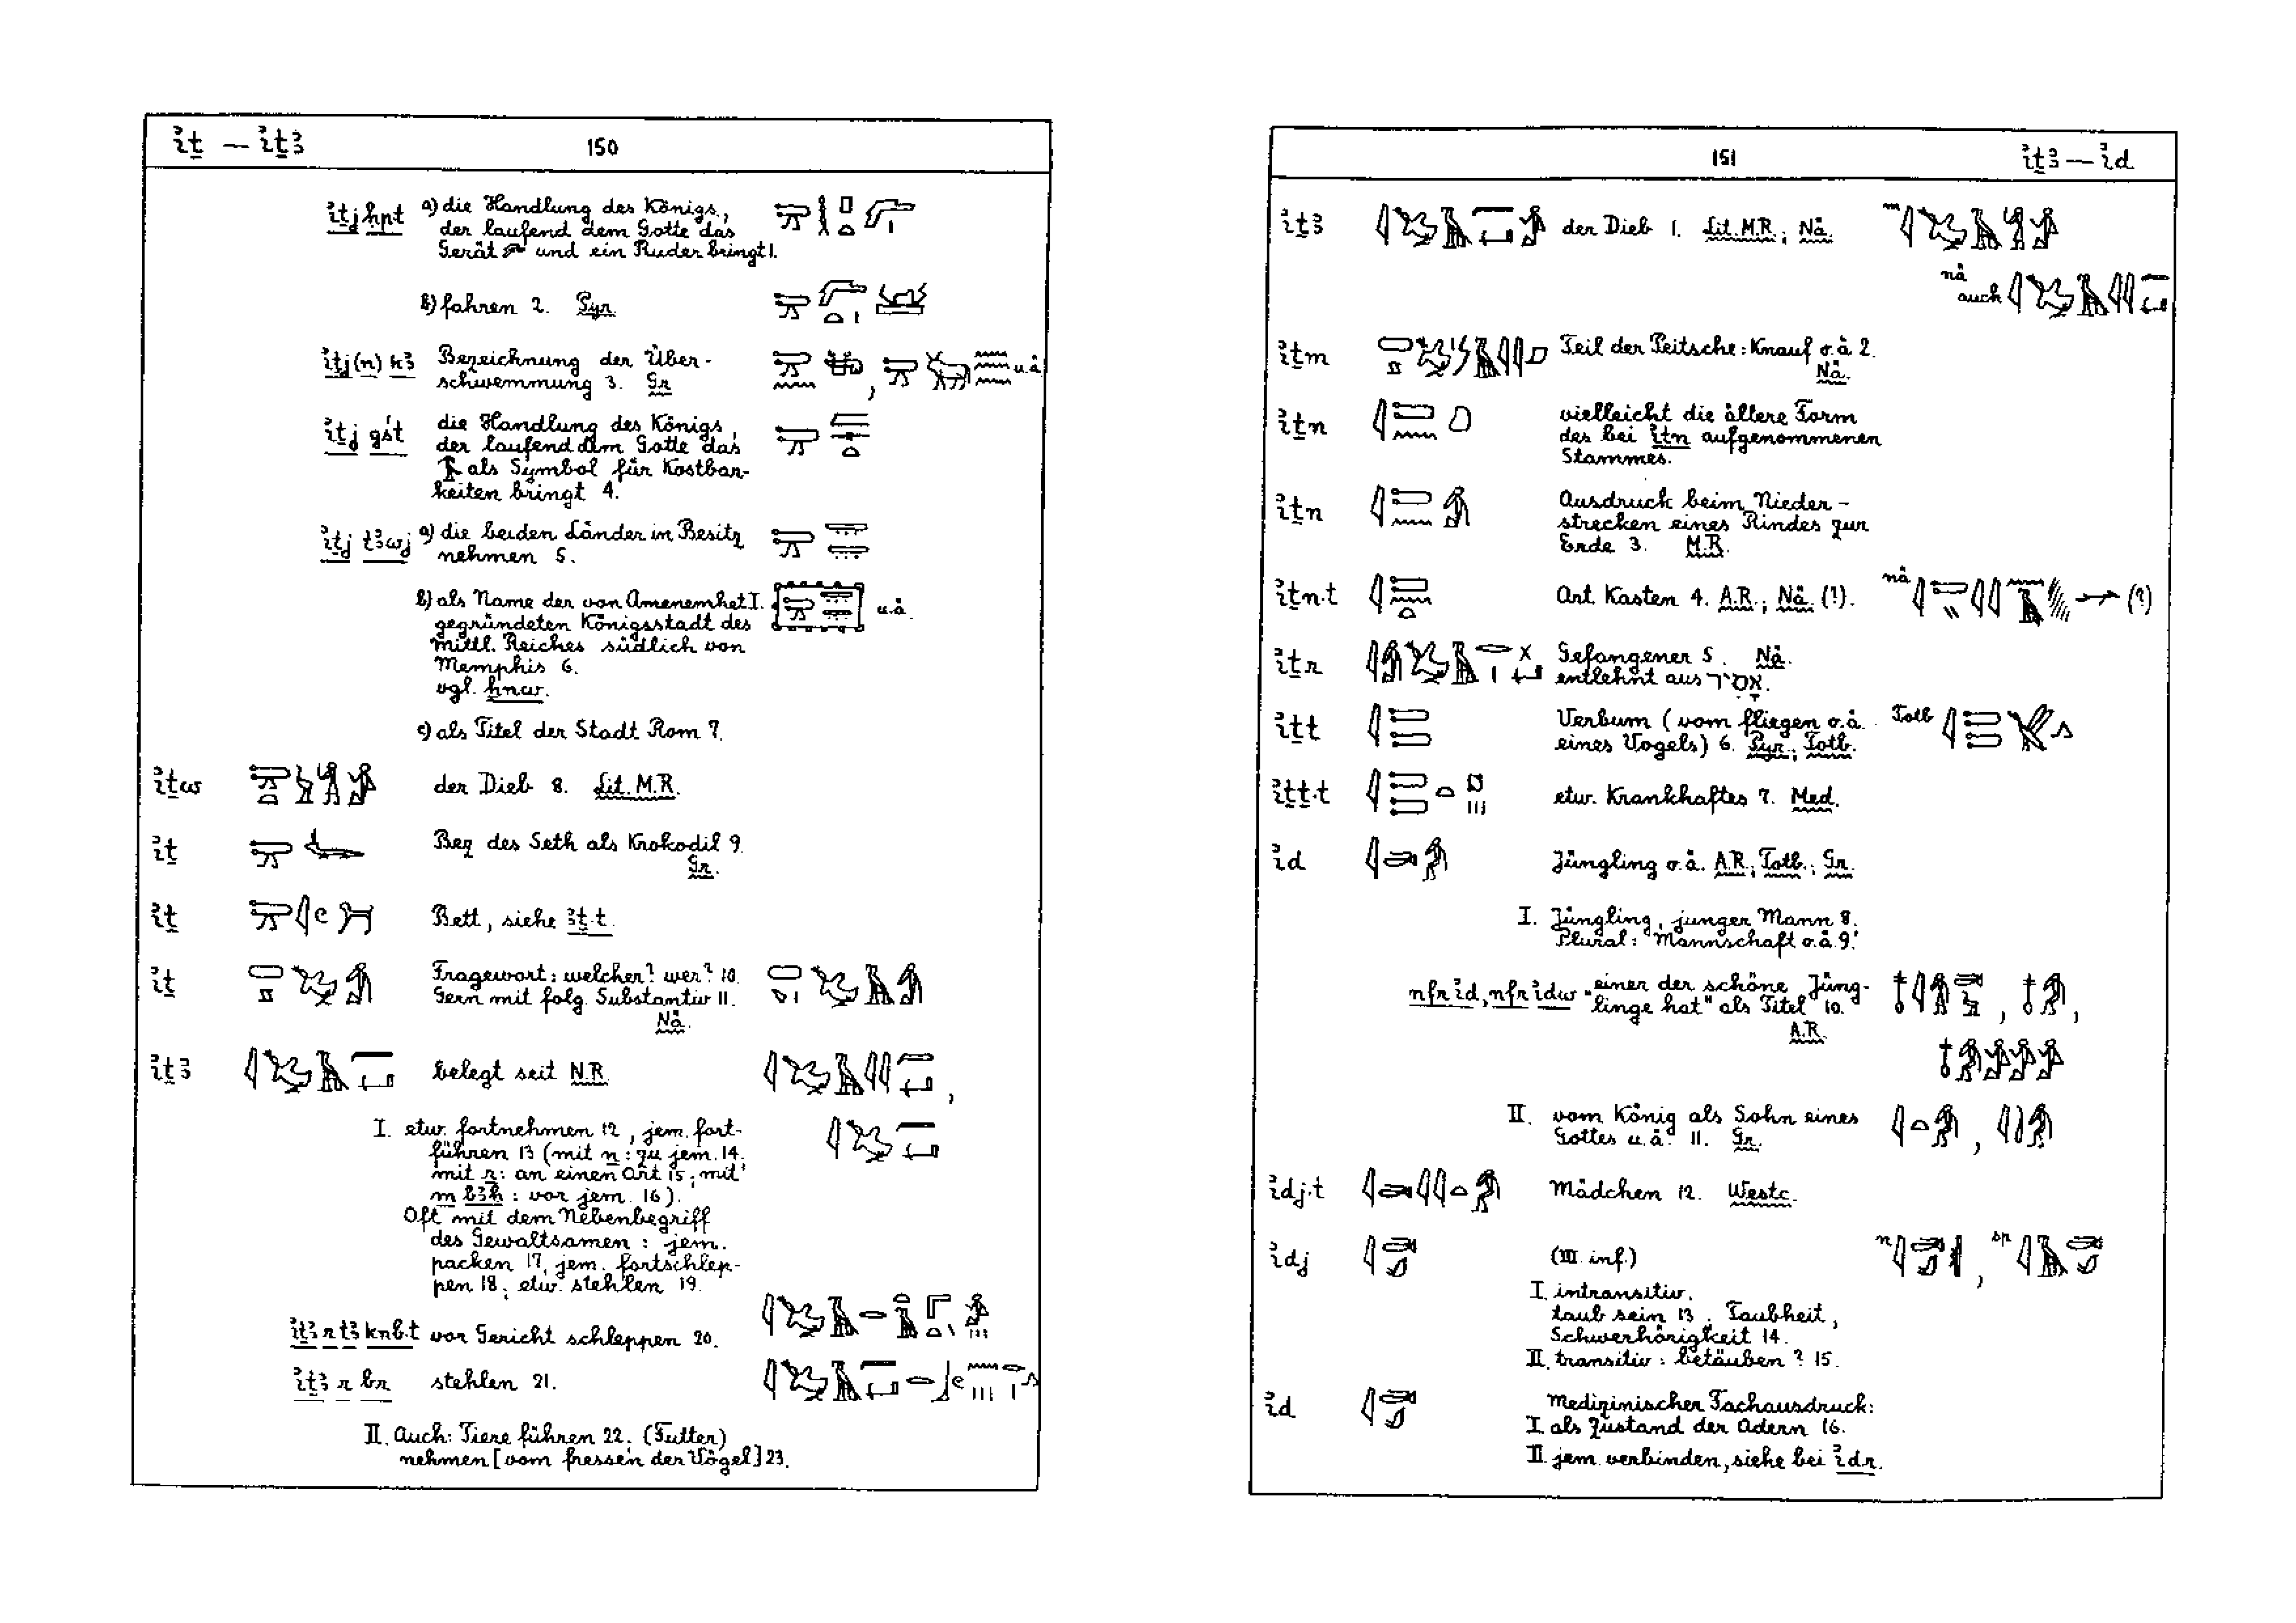 ꞽṯ — ꞽṯꜣ
150
ꞽṯj ḥpt a) die Handlung des Königs,
der laufend dem Gotte das
Gerät und ein Ruder bringt 1.
b) fahren 2. Pyr.
ꞽṯj (n) kꜣ Bezeichnung der Über-
schwemmung 3. Gr u.ä
ꞽṯj gśt die Handlung des Königs,
der laufend dem Gotte das
als Symbol für Kostbar-
keiten bringt 4.
ꞽṯj tꜣwj a) die beiden Länder in Besitz
nehmen 5.
b) als Name der von Amenemhet I. u.ä.
gegründeten Königsstadt des
mittl. Reiches südlich von
Memphis 6.
vgl. ẖnw.
c) als Titel der Stadt Rom 7.
ꞽṯw der Dieb 8. Lit. M.R.
ꞽṯ Bez des Seth als Krokodil 9.
Gr.
ꞽṯ Bett, siehe ꜣṯ.t.
ꞽṯ Fragewort: welcher? wer? 10.
Gern mit folg. Substantiv 11.
Nä.
ꞽṯꜣ belegt seit N.R.
I. etw. fortnehmen 12, jem. fort-
führen 13 (mit n: zu jem. 14.
mit r: an einen Ort 15; mit
m bꜣḥ: vor jem. 16).
Oft mit dem Nebenbegriff
des Gewaltsamen: jem.
packen 17, jem. fortschlep-
pen 18; etw. stehlen 19.
ꞽṯꜣ r tꜣ ḳnb.t vor Gericht schleppen 20.
ꞽṯꜣ r br stehlen 21.
II. Auch: Tiere führen 22. (Futter)
nehmen [vom fressen der Vögel] 23.
151
ꞽṯꜣ — ꞽd
ꞽṯꜣ der Dieb 1. Lit. M.R.; Nä. m
nä
auch
ꞽṯm Teil der Peitsche: Knauf o.ä 2.
Nä.
ꞽṯn vielleicht die ältere Form
des bei ꞽtn aufgenommenen
Stammes.
ꞽṯn Ausdruck beim Nieder-
strecken eines Rindes zur
Erde 3. M.R.
ꞽṯn.t Art Kasten 4. A.R.; Nä. (?). nä (?)
ꞽṯr Gefangener 5. Nä.
entlehnt aus אסיר.
ꞽṯṯ Verbum (vom fliegen o.ä. Totb
eines Vogels) 6. Pyr.; Totb.
ꞽṯṯ.t etw. Krankhaftes 7. Med.
ꞽd Jüngling o.ä. A.R.; Totb.; Gr.
I. Jüngling, junger Mann 8.
Plural: Mannschaft o.ä. 9.
nfr ꞽd, nfr ꞽdw "einer der schöne Jüng-
linge hat" als Titel 10.
A.R.
II. vom König als Sohn eines
Gottes u.ä. 11. Gr.
ꞽdj.t Mädchen 12. Westc.
ꞽdj (III. inf.) n sp
I. intransitiv.
taub sein 13. Taubheit,
Schwerhörigkeit 14.
II. transitiv: betäuben? 15.
ꞽd Medizinischer Fachausdruck:
I. als Zustand der Adern 16.
II. jem. verbinden, siehe bei ꞽdr.